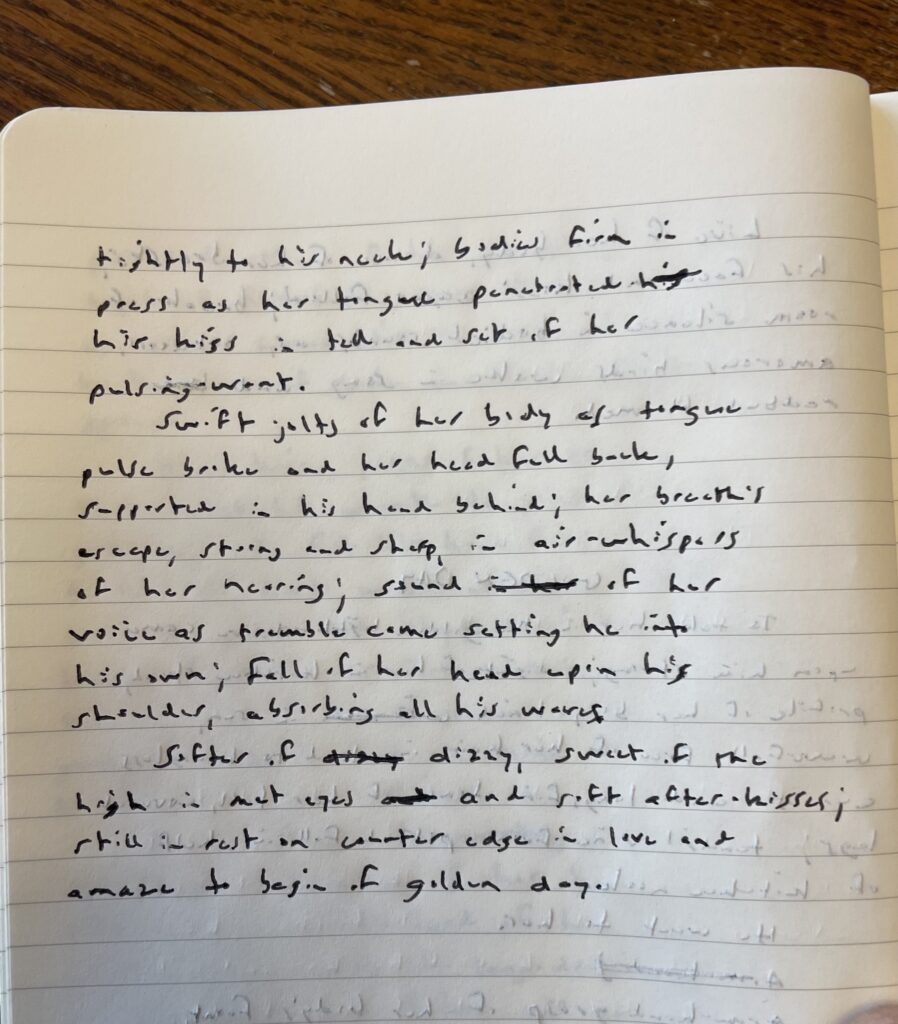 tightly to his neck; bodies firm in
press as her tongue penetrated his
his kiss in tell and set of her
pulsing want.
Swift jolts of her body as tongue
pulse broke and her head fell back,
supported in his hand behind; her breath's
escape, strong and sharp, in air-whispers
of her nearing; sound in her of her
voice as tremble came setting he into
his own; fall of her head upon his
shoulder, absorbing all his waves
Softer of dizzy dizzy, sweet of the
high in met eyes and and soft after-kisses;
still in rest on counter edge in love and
amaze to begin of golden day.